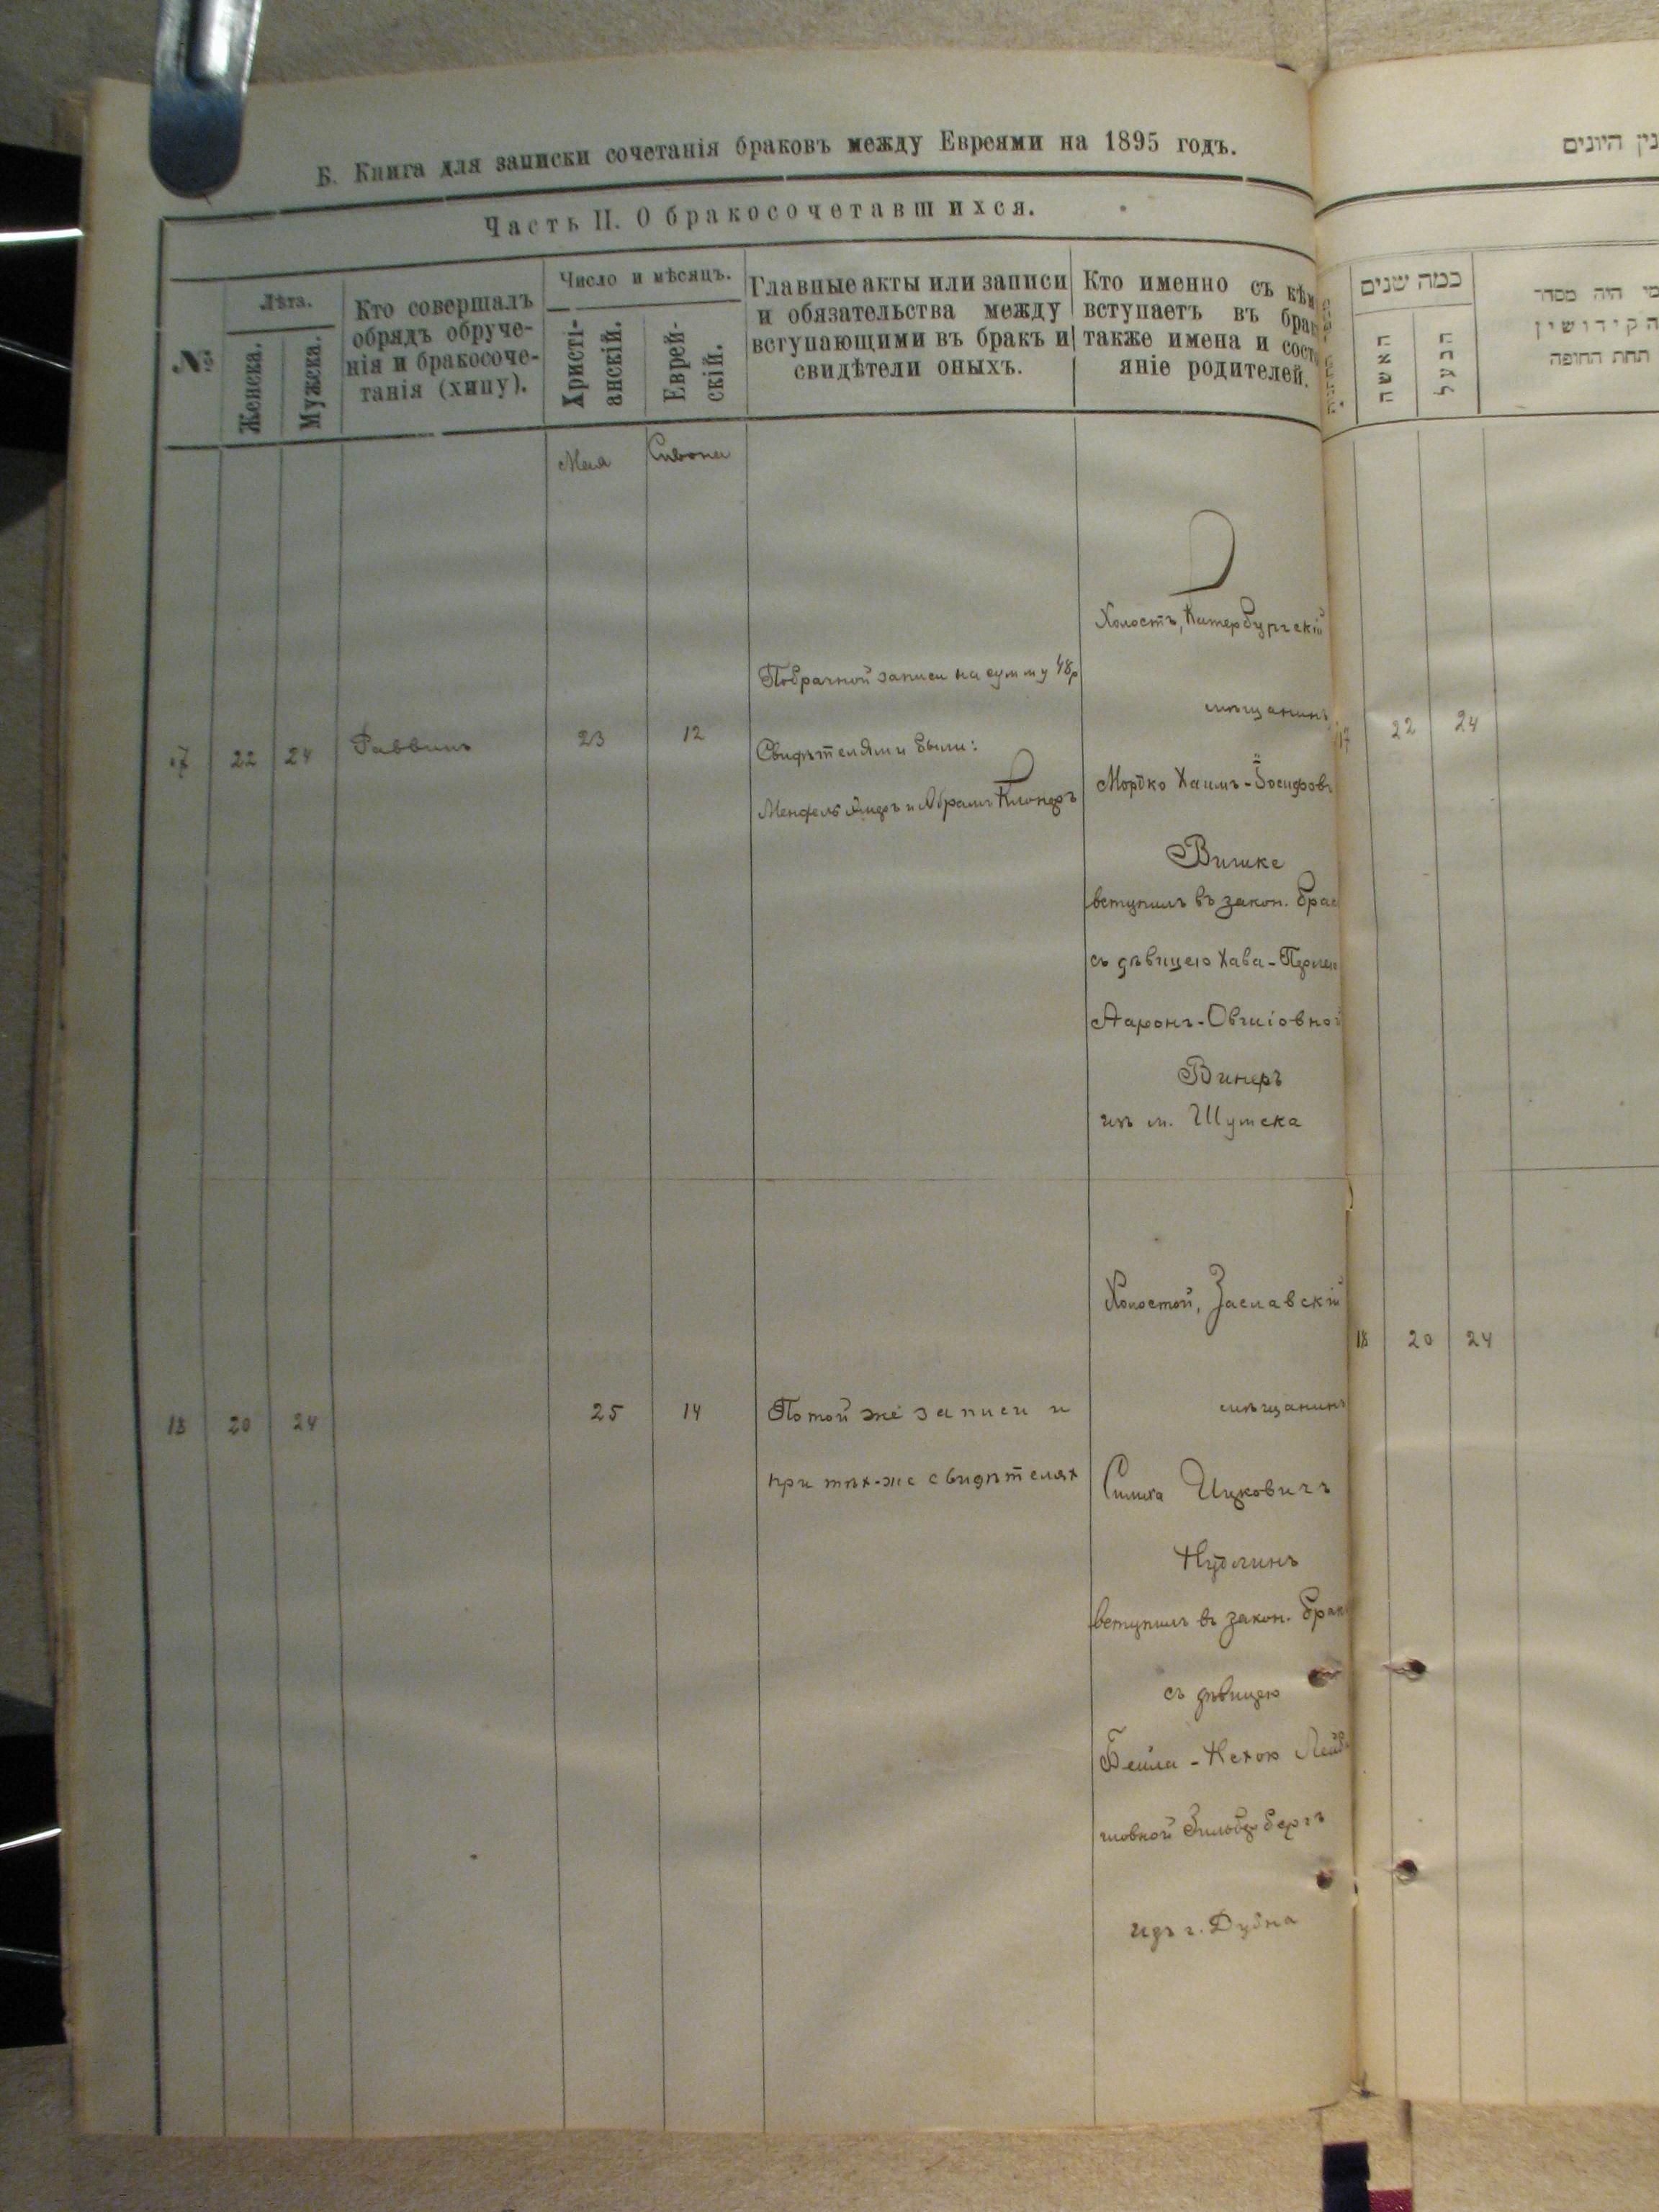 Б. Книга для записки сочетанія браковъ между Евреями на 1895 годъ.
Часть II. О бракосочетавшихся.
№
Лѣта.
Женска.
Мужска.
Кто совершалъ
обрядъ обруче-
нія и бракосоче-
танія (хипу).
Число и мѣсяцъ.
Христі-
анскій.
Еврей-
скій.
Главные акты или записи
и обязательства между
вступающими въ бракъ и
свидѣтели оныхъ.
Кто именно съ кѣм
вступаетъ въ брак
также имена и сост
яніе родителей.
Мая
Сивона
17
22
24
Раввинъ
23
12
Побрачной записи на сумму 48р
Свидѣтелями были:
Мендель и Абрамъ
Холостъ, Китербургскій
мѣщанинъ
Мордко Хаимъ-Іосифовъ
Вишке
вступилъ въ закон. брас
съ дѣвицею Хава-Перлею
Ааронъ-Овшіовной
Винеръ
изъ м. Шумска
18
20
24
25
14
По той же записи и
при тѣх-же свидѣтелях
Холостой, Заславскій
мѣщанинъ
Симха Ицковичъ
Нудлинъ
вступилъ въ закон. брак
съ дѣвицею
Бейла-Нехою Лейб
іовной Зильбербергъ
изъ г. Дубна
נין היונים
כמה שנים
האשה
הבעל
מי היה מסדר
הקידושין
תחת החופה
17
22
24
18
20
24